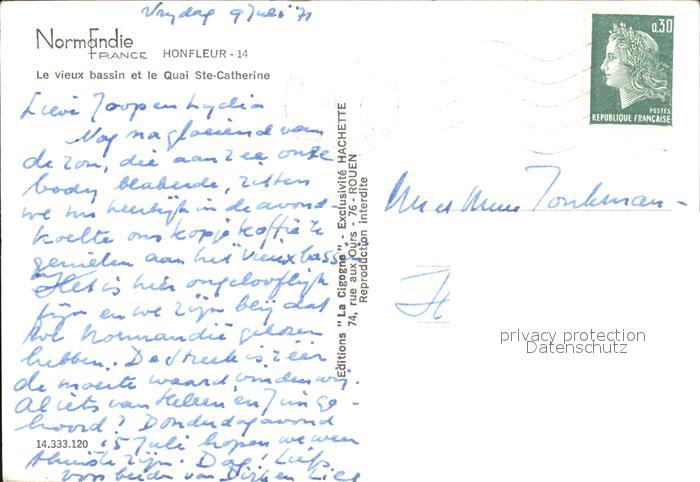 Vrydag 9 Juli '71
Normandie
FRANCE HONFLEUR - 14
Le vieux bassin et le Quai Ste-Catherine
0,30
POSTES
REPUBLIQUE FRANÇAISE
Lieve Joop en Lydia
Nog nagloeiend van
de zon, die aan zee onze
body blakerde, zitten
we nu heerlijk in de avond-
koelte ons kopje koffie te
genieten aan het vieux bassin.
Het is hier ongelooflijk
fijn en we zijn blij dat
we Normandië gekozen
hebben. De streek is zéér
de moeite waard, vinden wij.
Al iets van Heleen en ge-
hoord? Donderdagavond
15 Juli hopen we weer
thuis te zijn. Dag! Liefs
voor beiden van Dirk en Lies
14.333.120
Editions "La Cigogne" - Exclusivité HACHETTE
74, rue aux Ours - 76 - ROUEN
Reproduction interdite
Mr et Mme Tonkman -
privacy protection
Datenschutz